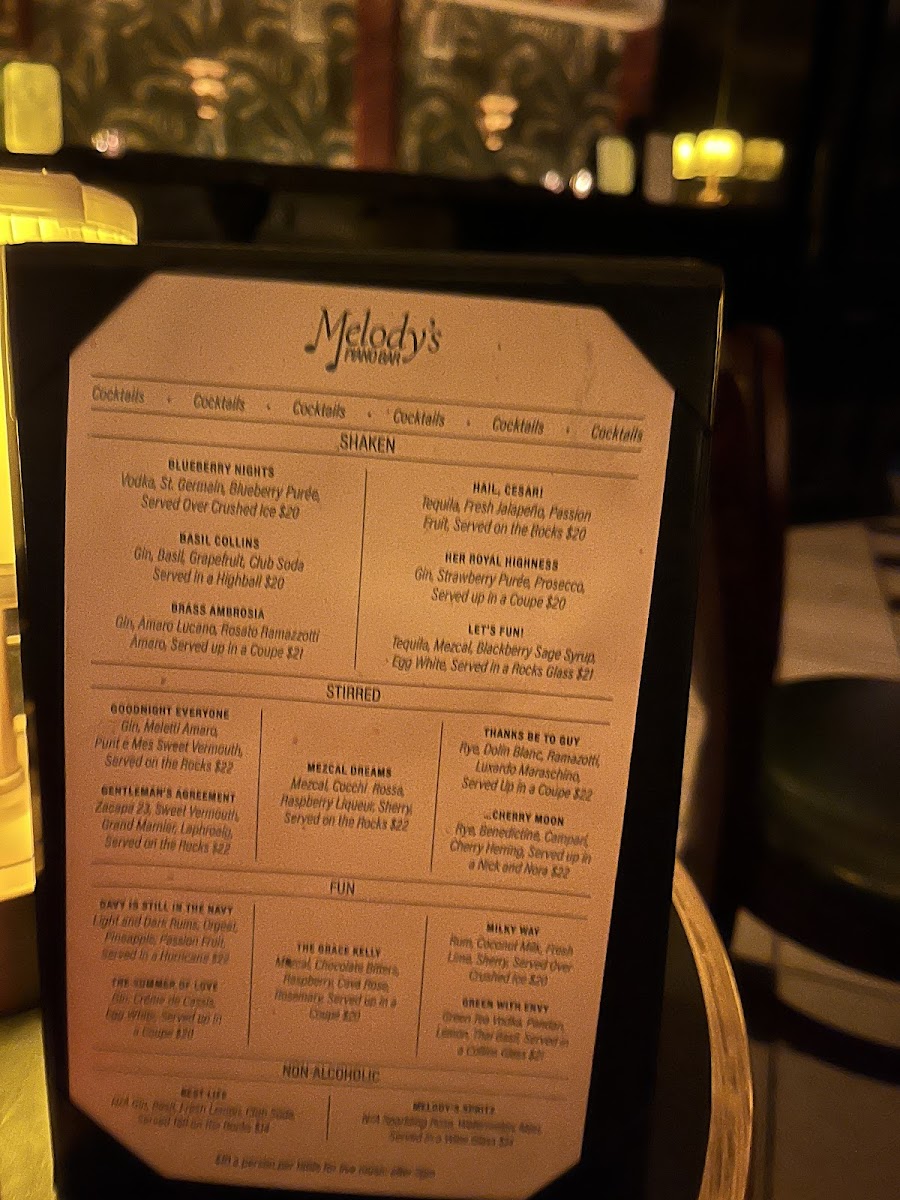 Melody's
PIANO BAR
Cocktails • Cocktails • Cocktails • Cocktails • Cocktails • Cocktails
SHAKEN
BLUEBERRY NIGHTS
Vodka, St. Germain, Blueberry Purée,
Served Over Crushed Ice $20
BASIL COLLINS
Gin, Basil, Grapefruit, Club Soda
Served in a Highball $20
BRASS AMBROSIA
Gin, Amaro Lucano, Rosato Ramazzotti
Amaro, Served up in a Coupe $21
HAIL, CESAR!
Tequila, Fresh Jalapeño, Passion
Fruit, Served on the Rocks $20
HER ROYAL HIGHNESS
Gin, Strawberry Purée, Prosecco,
Served up in a Coupe $20
LET'S FUN!
Tequila, Mezcal, Blackberry Sage Syrup,
Egg White, Served in a Rocks Glass $21
STIRRED
GOODNIGHT EVERYONE
Gin, Meletti Amaro,
Punt e Mes Sweet Vermouth,
Served on the Rocks $22
GENTLEMAN'S AGREEMENT
Zacapa 23, Sweet Vermouth,
Grand Marnier, Laphroaig,
Served on the Rocks $22
MEZCAL DREAMS
Mezcal, Cocchi Rossa,
Raspberry Liqueur, Sherry,
Served on the Rocks $22
THANKS BE TO GUY
Rye, Dolin Blanc, Ramazotti,
Luxardo Maraschino,
Served Up in a Coupe $22
CHERRY MOON
Rye, Benedictine, Campari,
Cherry Herring, Served up in
a Nick and Nora $22
FUN
DAVY IS STILL IN THE NAVY
Light and Dark Rums, Orgeat,
Pineapple, Passion Fruit,
Served in a Hurricane
THE SUMMER OF LOVE
Gin, Crème de Cassis,
Egg White, Served up in
a Coupe $20
THE GRACE KELLY
Mezcal, Chocolate Bitters,
Raspberry, Cava Rose,
Rosemary, Served up in a
Coupe $20
MILKY WAY
Rum, Coconut Milk, Fresh
Lime, Sherry, Served Over
Crushed Ice $20
GREEN WITH ENVY
Green Tea Vodka, Pandan,
Lemon, Thai Basil, Served in
a Collins Glass $21
NON ALCOHOLIC
BEST LIFE
N/A Gin, Basil, Fresh Lemon, Club Soda
Served Tall on the Rocks $14
MELODY'S SPRITZ
N/A Sparkling Rose, Watermelon, Mint,
Served in a Wine Glass $14
a person per for live music after